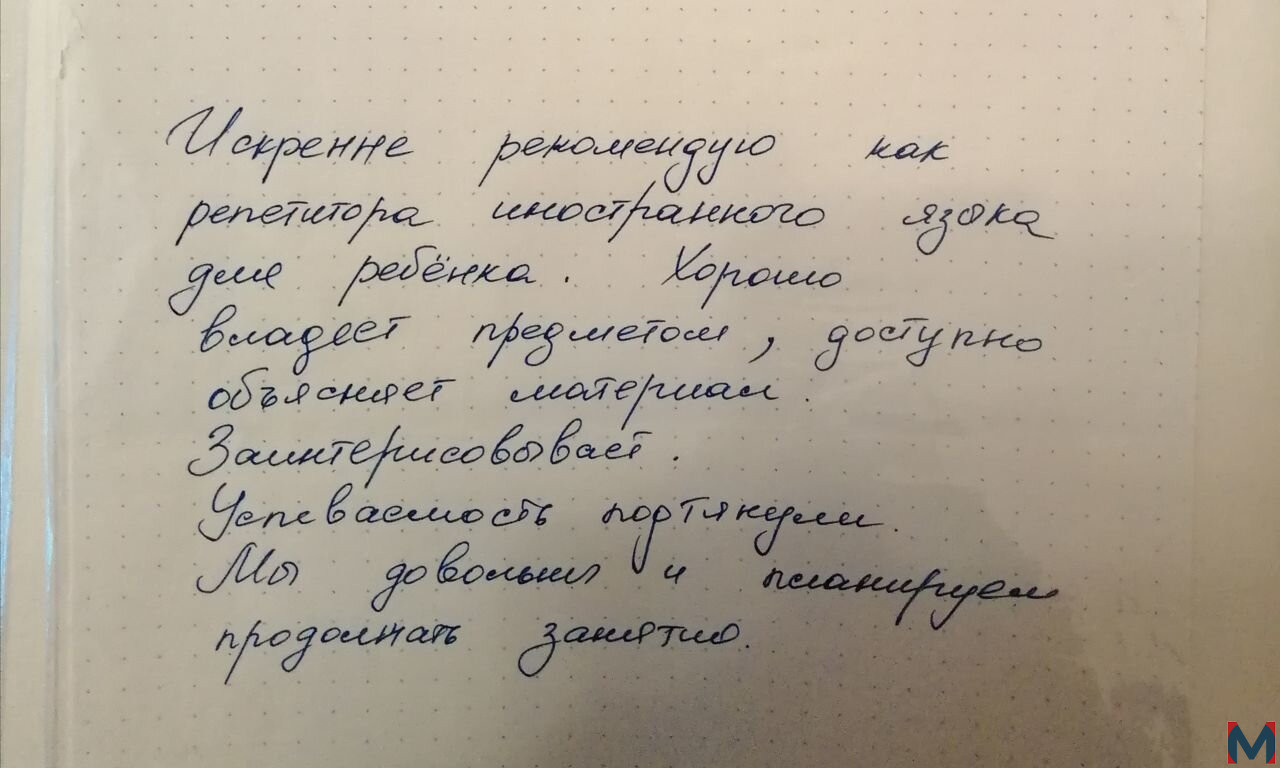 Искренне рекомендую как
репетитора иностранного языка
для ребёнка. Хорошо
владеет предметом, доступно
объясняет материал.
Заинтерисовывает.
Успеваемость подтянули.
Мы довольны и планируем
продолжать занятию.
M